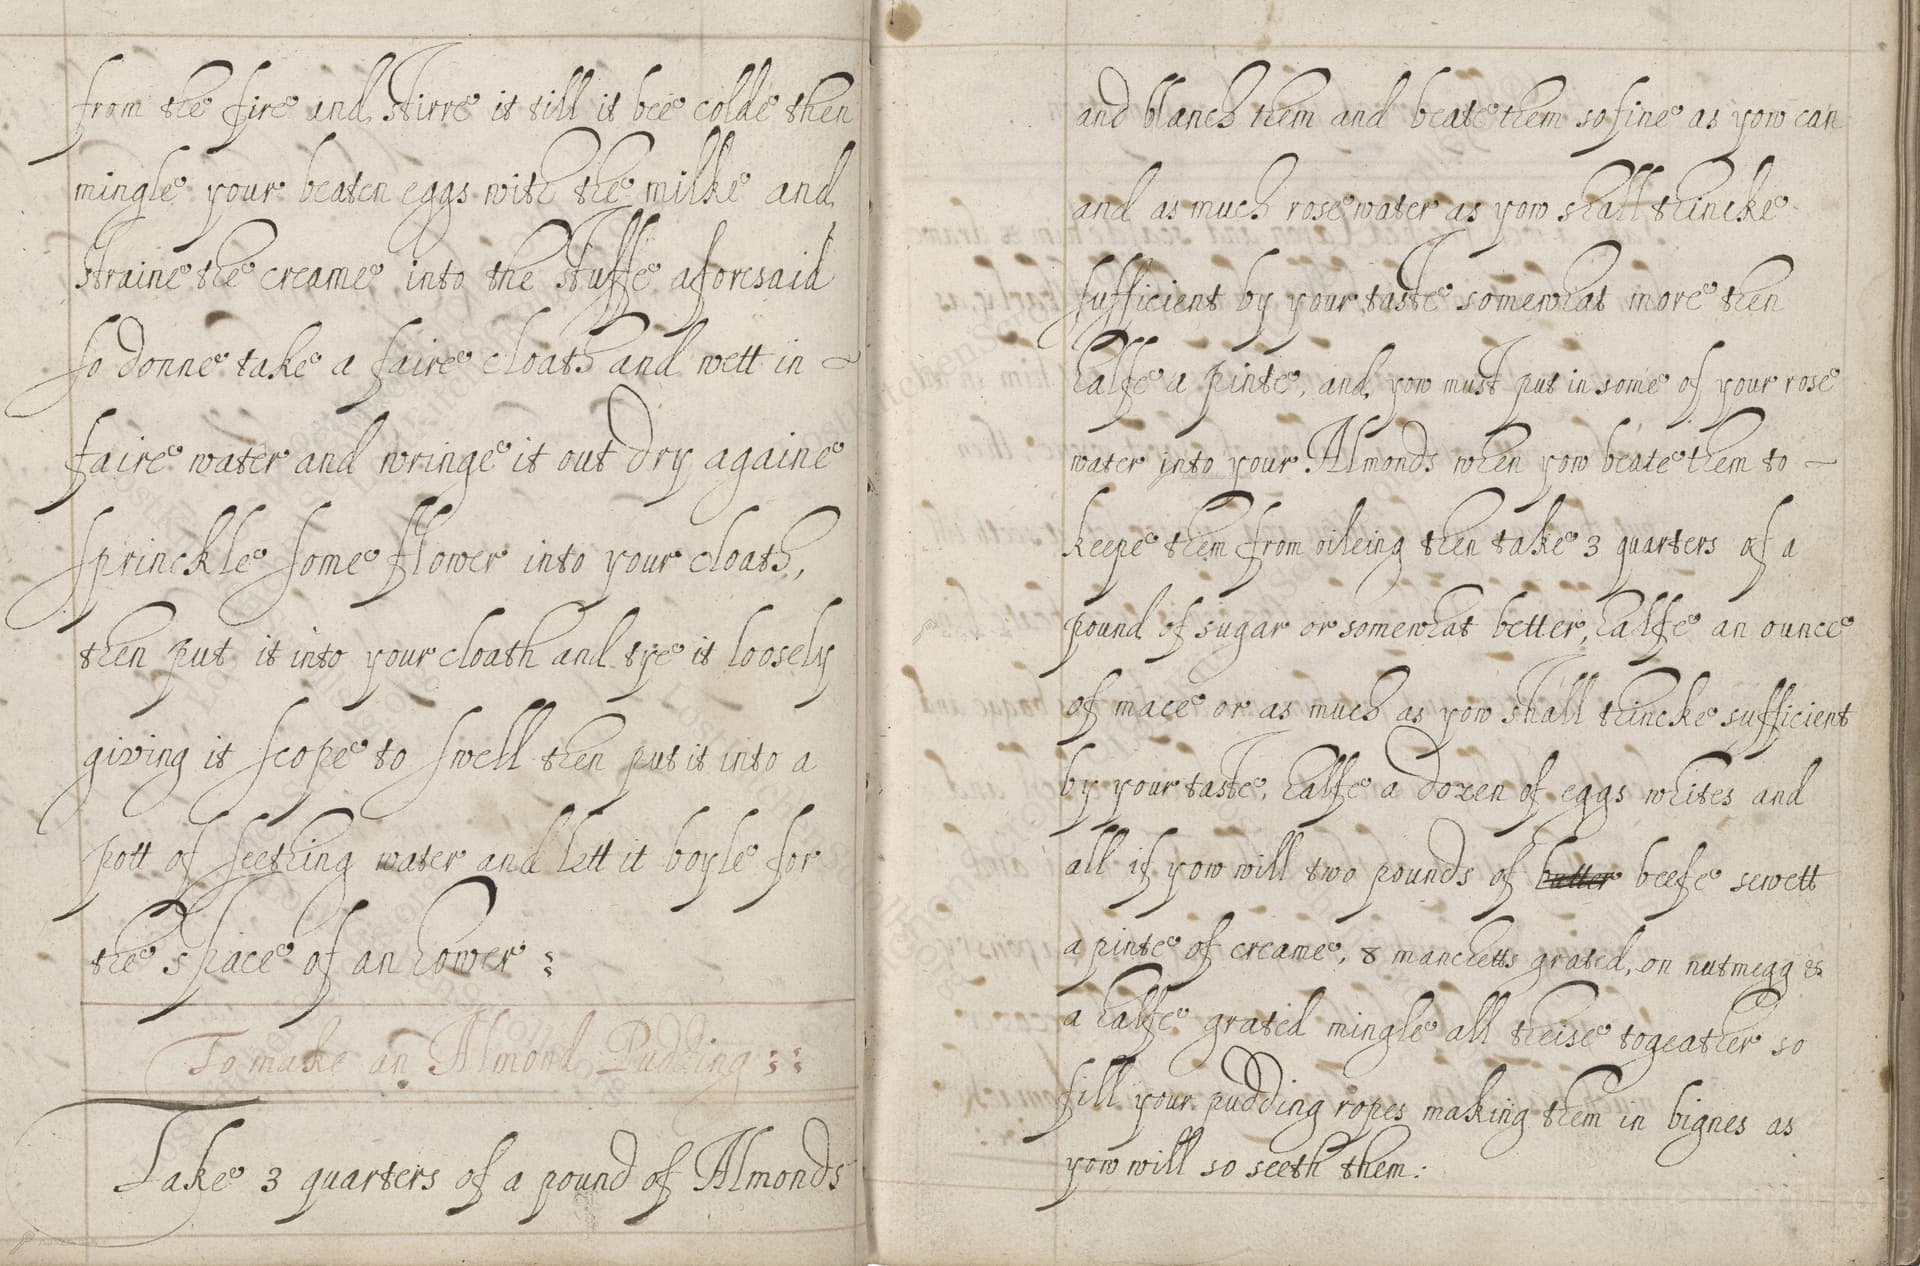 from the fire and Stirre it till it bee colde then
mingle your beaten eggs with the milke and
Straine the creame into the Stuffe aforesaid
so donne take a faire cloath and wett in
faire water and wringe it out dry againe
sprinckle some flower into your cloath,
then put it into your cloath and tye it loosely
giving it scope to swell then put it into a
pott of seething water and lett it boyle for
the space of an hower
To make an Almond Pudding
Take 3 quarters of a pound of Almonds
and blanch them and beate them so fine as yow can
and as much rose water as yow shall thincke
sufficient by your taste somewhat more then
halfe a pinte, and yow must put in some of your rose
water into your Almonds when yow beate them to
keepe them from oileing then take 3 quarters of a
pound of sugar or somewhat better, halfe an ounce
of mace or as much as yow shall thincke sufficient
by your taste, halfe a dozen of eggs whites and
all if yow will two pounds of butter beefe sewett
a pinte of creame, 8 manchetts grated, on nutmegg &
a halfe grated mingle all theise togeather so
fill your pudding ropes making them in bignes as
yow will so seeth them: